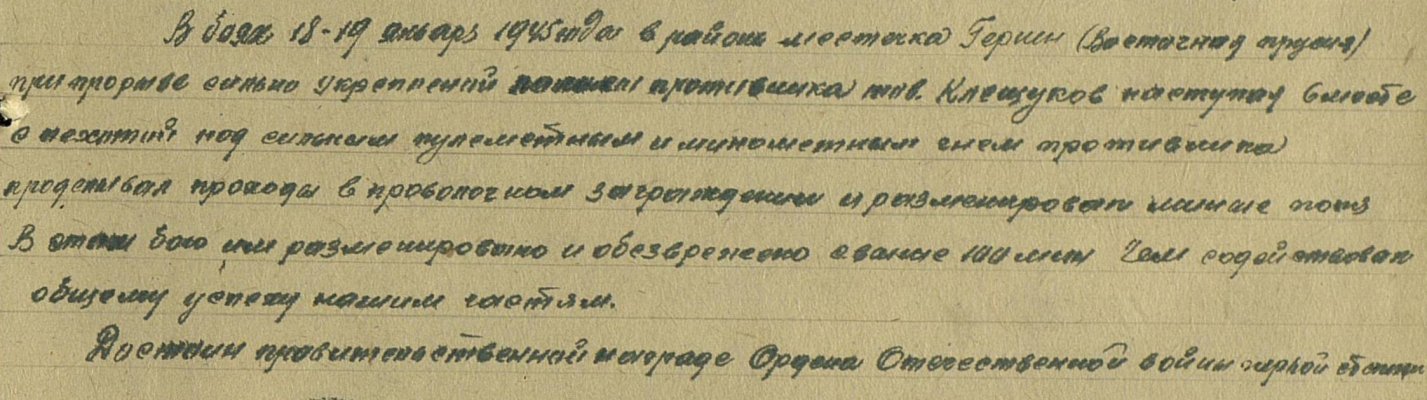 В боях 18-19 январь 1945 года в районе местечка (Восточная прусия)
при прорыве сильно укрепленой противника тов. Клещуков наступая вместе
с пехотой под сильным пулеметным и минометным огнем противника
проделывал проходы в проволочном заграждении и разменировал минные поля
В этом бою им разменировано и обезврежено свыше 100 мин Чем содействовал
общему успеху нашим частям.
Достоин правительственной награде Ордена Отечественной войны первой степени